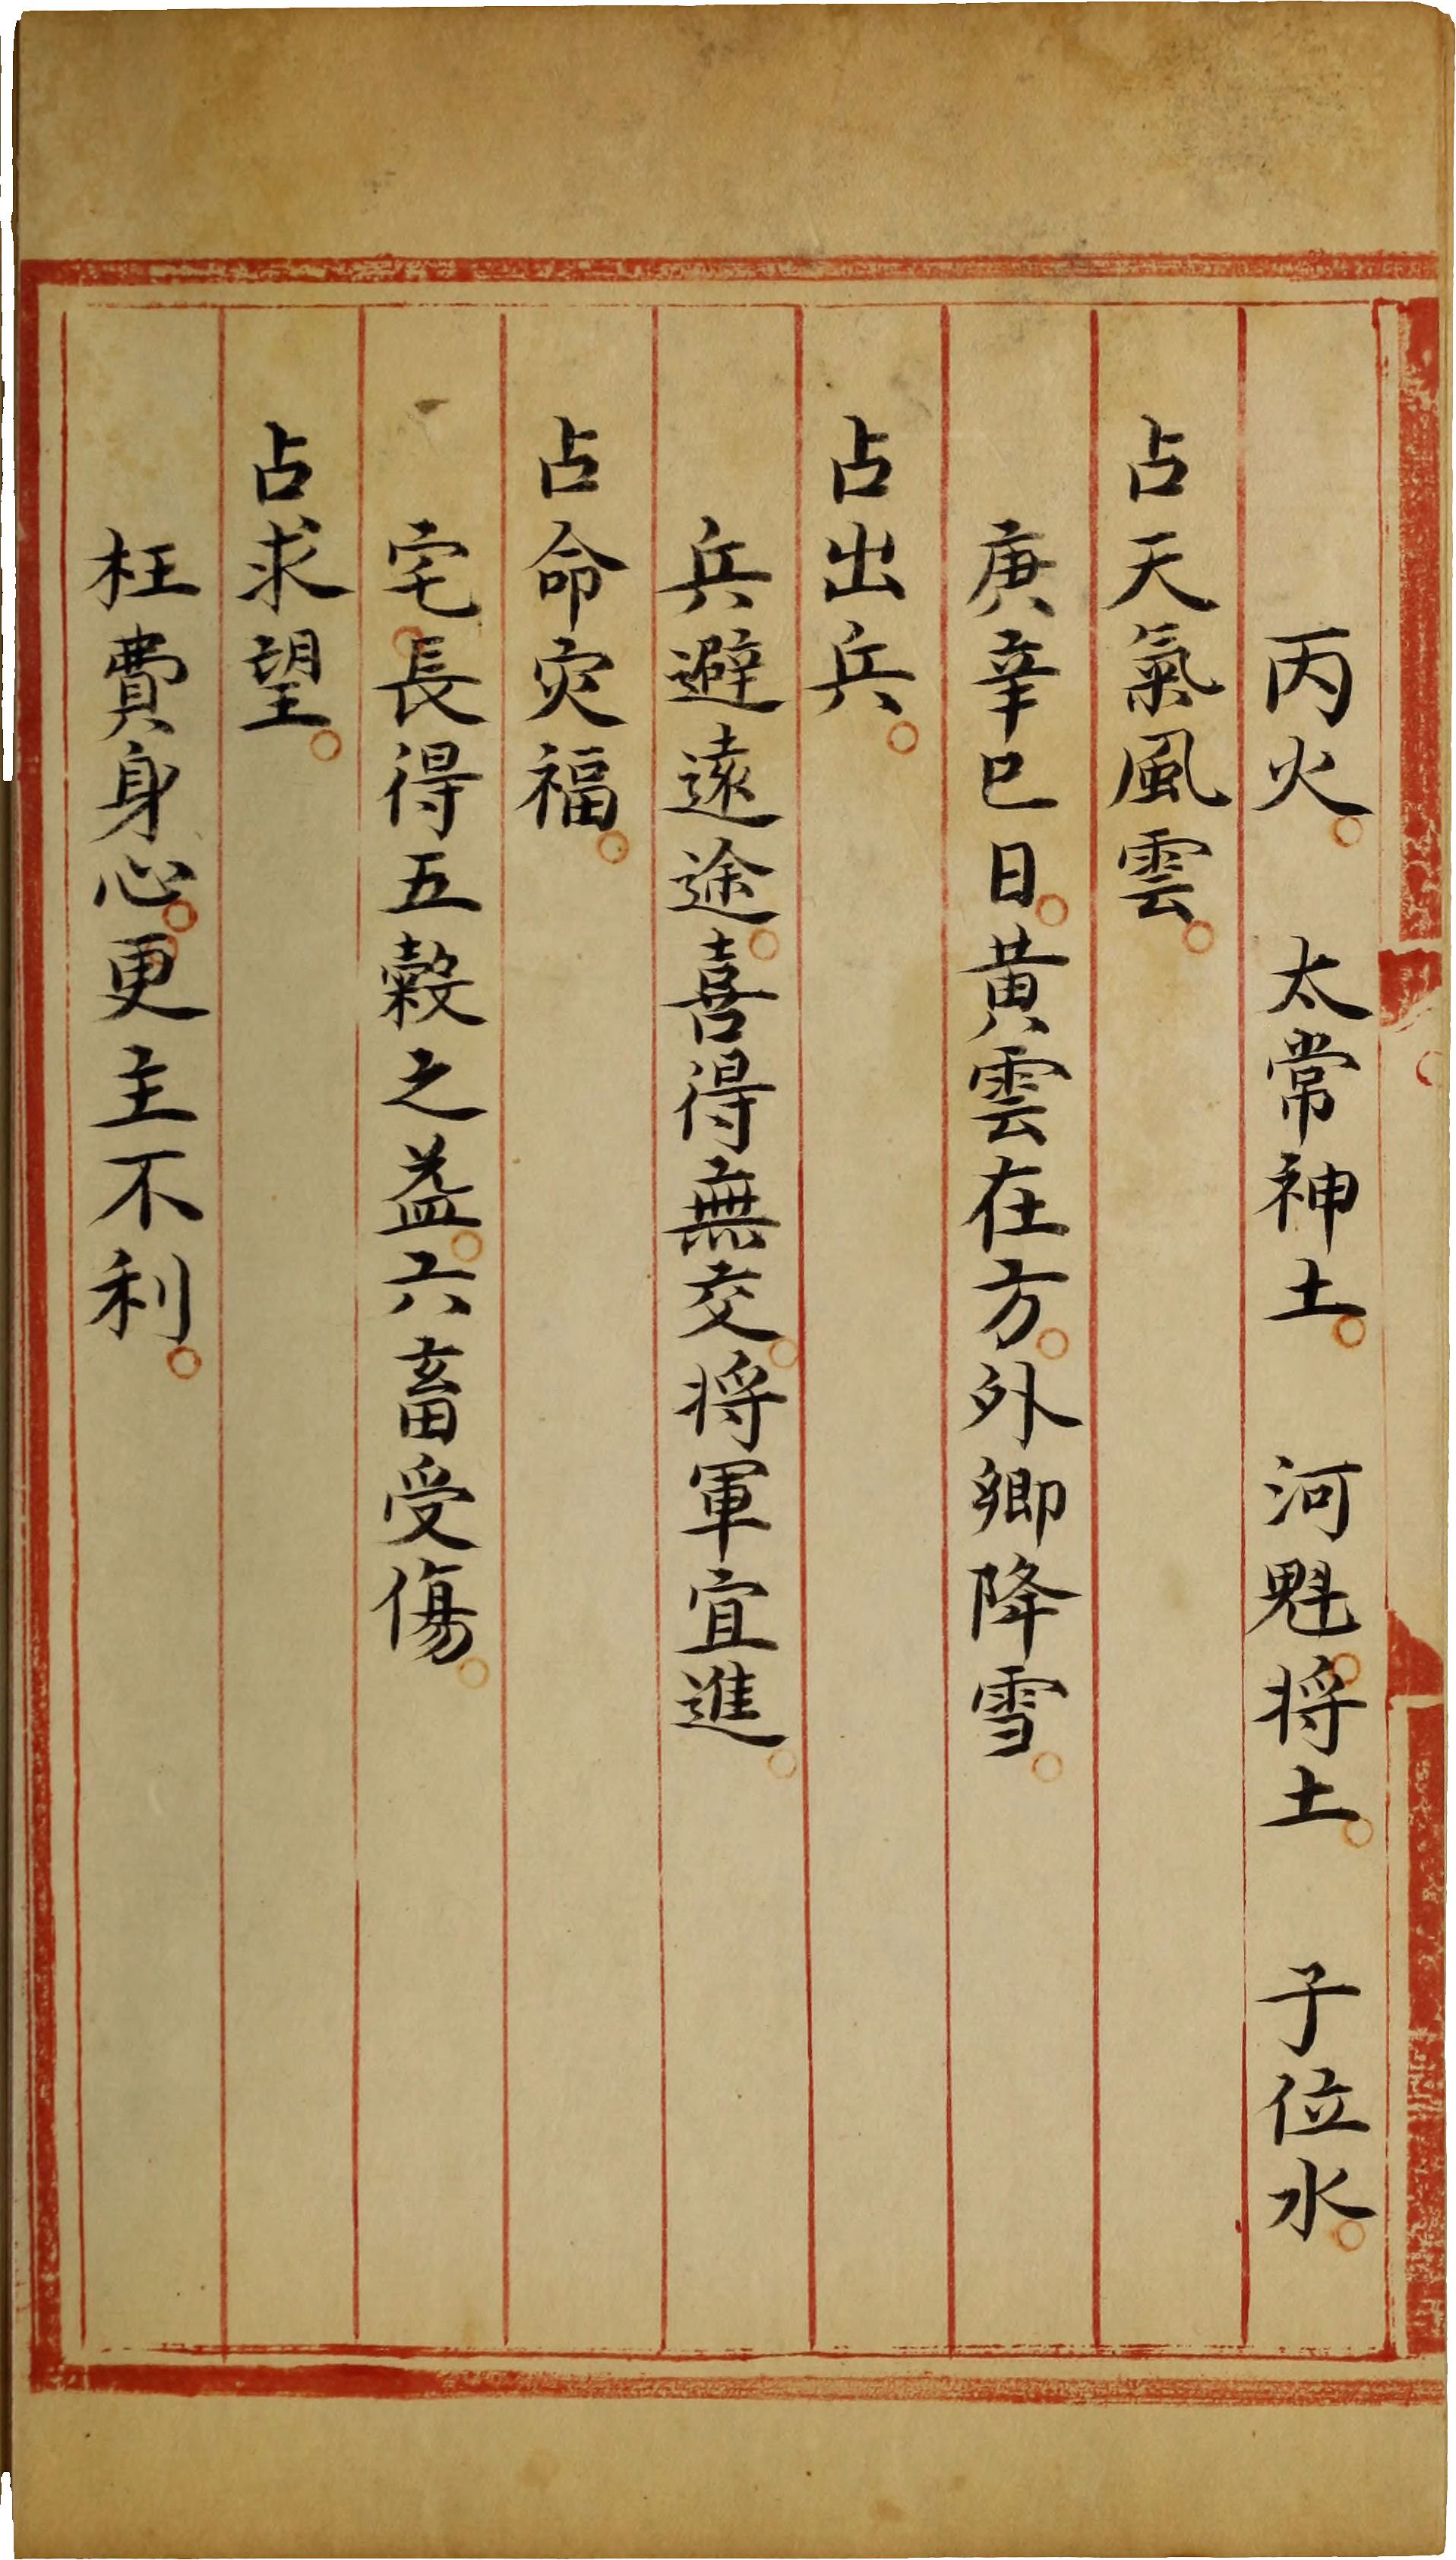 丙火。　太常神土。　河魁。将土。　子位水。
占天氣風雲。
庚辛巳日。黄雲在方。外卿降雪。
占出兵。
兵避遠途。喜得無交。将軍宜進。
占命灾福。
宅。長得五穀之益。六畜受傷。
占求望。
枉費身心。更主不利。